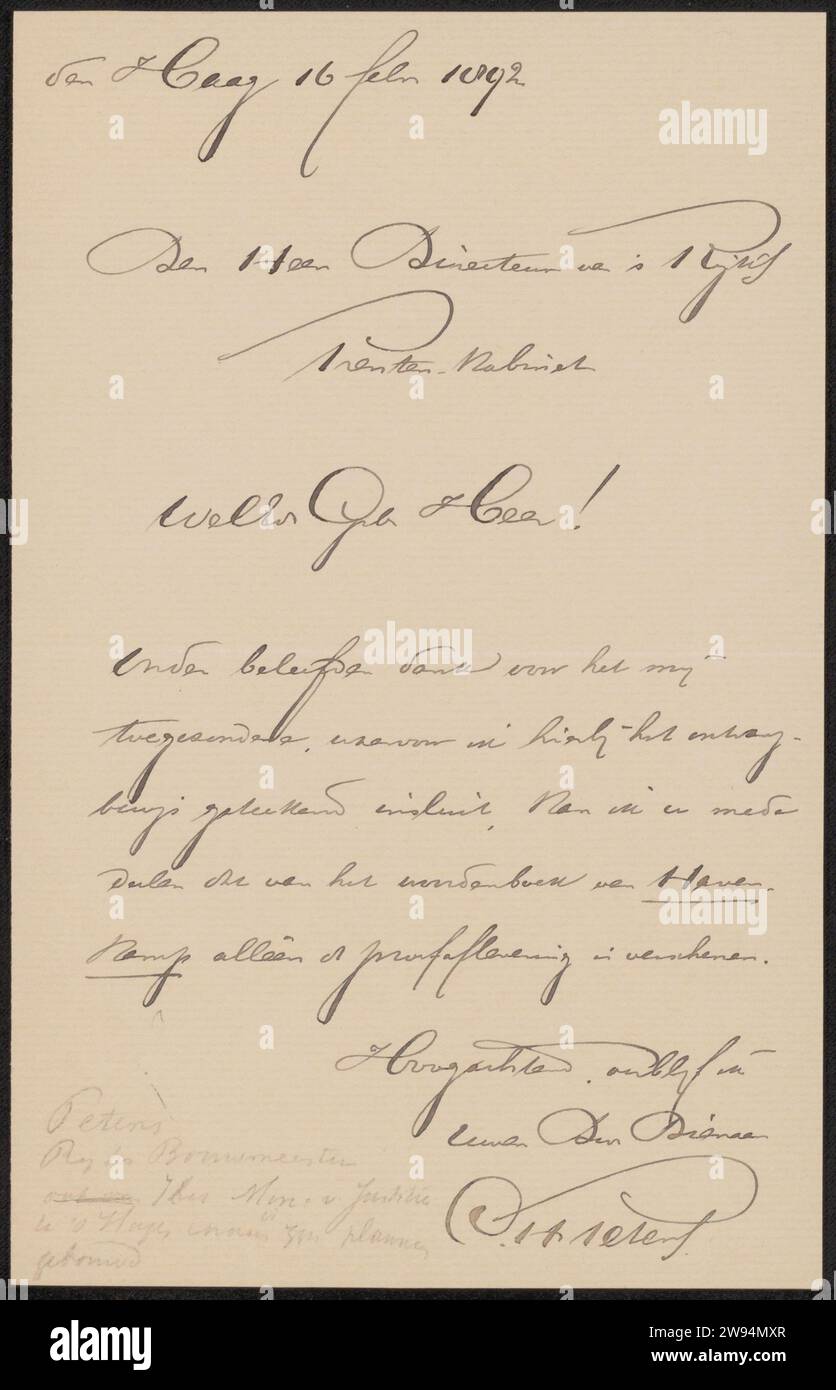 den Haag 16 febr 1892
Den Heer Directeur van 's Rijks
Prenten-Kabinet
WelEd Geb Heer!
Onder beleefden dank voor het mij
toegezondene, waarvoor ik hierbij het ontvang-
bewijs geteekend insluit, kan ik u mede
deelen dat van het woordenboek van Haver
Kamp alléén de proefaflevering is verschenen.
Hoogachtend, verblijf ik
Uwen Dw Dienaar
C.H. Peters.
Peters
Rijks Bouwmeester
Min. v. Justitie
is zijn plannen
gebouwd
alamy
Image ID: 2W94MXR
www.alamy.com